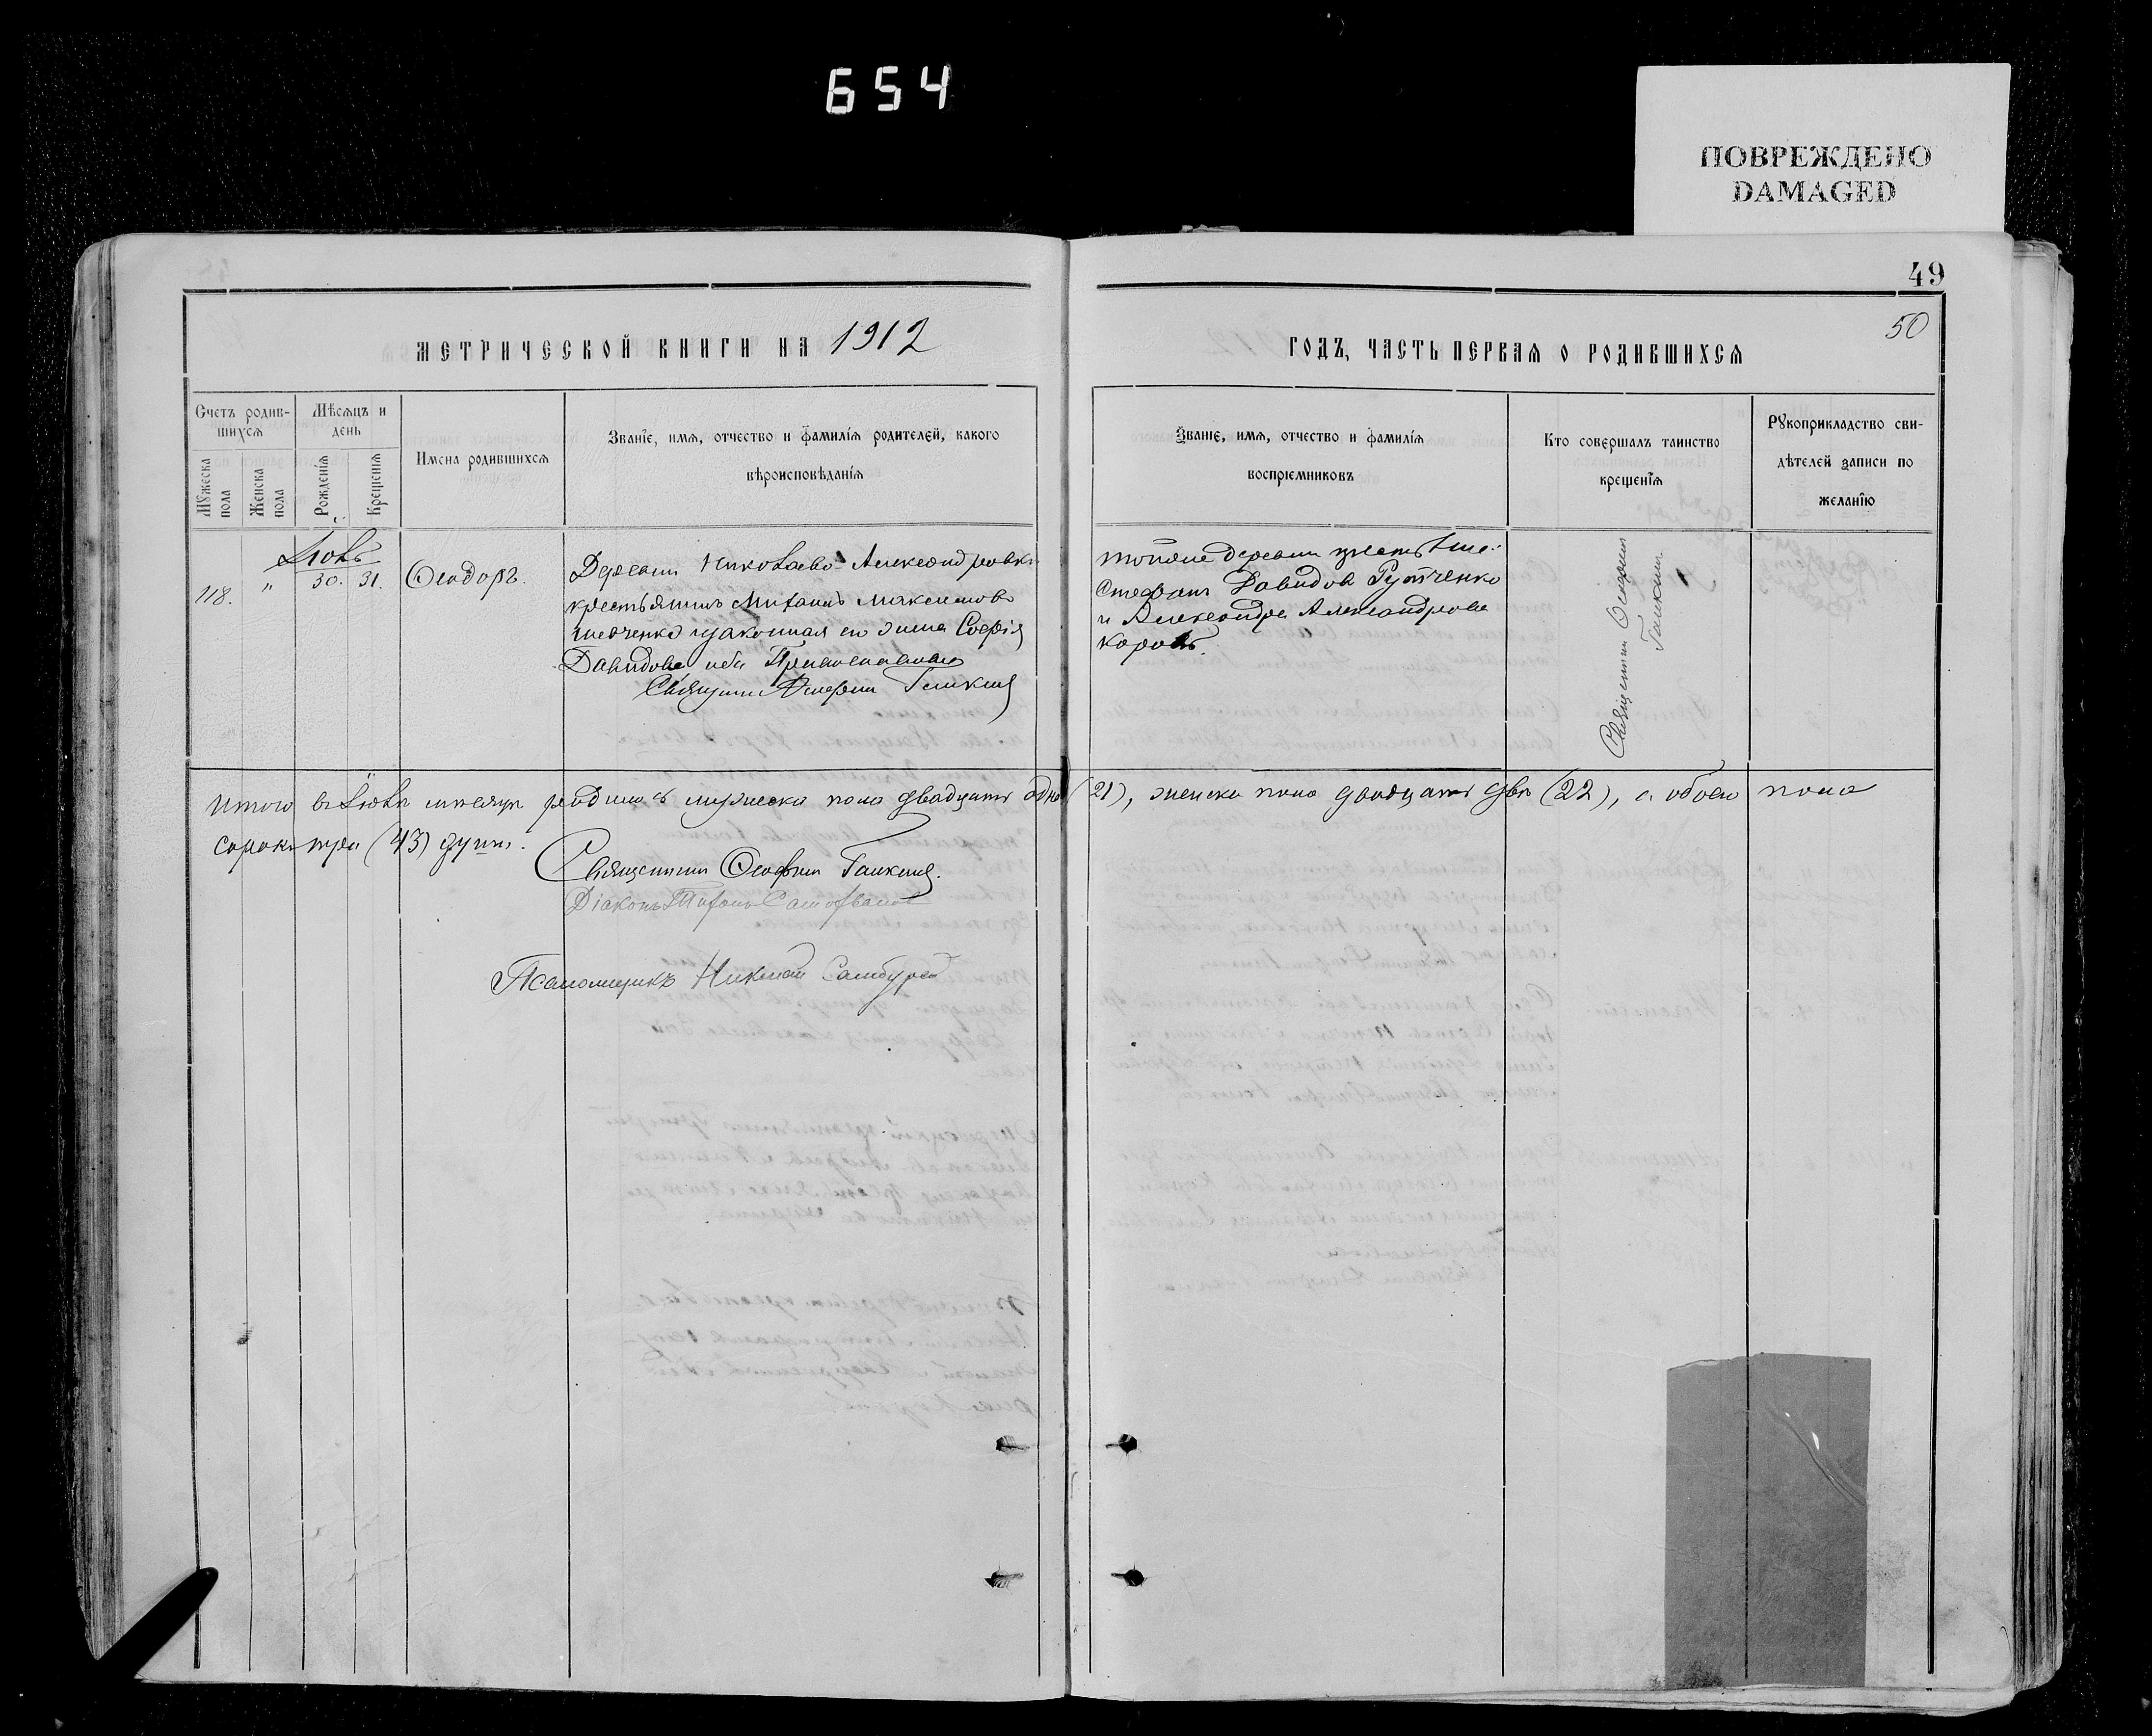 654
ПОВРЕЖДЕНО
DAMAGED
49
50
МЕТРИЧЕСКОЙ КНИГИ НА 1912
ГОДЪ, ЧАСТЬ ПЕРВАЯ О РОДИВШИХСЯ
Счетъ родив-
шихся
Мѣсяцъ и
день
Мужеска
пола
Женска
пола
Рожденія
Крещенія
Имена родившихся
Званіе, имя, отчество и фамилія родителей, какого
вѣроисповѣданія
Званіе, имя, отчество и фамилія
воспріемниковъ
Кто совершалъ таинство
крещенія
Рукоприкладство сви-
дѣтелей записи по
желанію
Іюль
118. " 30. 31. Ѳеодоръ.
Деревни Николаево-Александровки
крестьянинъ Михаилъ Максимовъ
Шевченко и законная его жена Софія
Давидова оба Православные
Священникъ Ѳеофилъ Галкинъ
тойже деревни крестьяне:
Стефанъ Давидовъ Рутченко
и Александра Александрова
Король.
Священникъ Ѳеофилъ
Галкинъ
Итого въ Іюлѣ мѣсяцѣ родилось мужеска пола двадцать одна (21), женска пола двадцать двѣ (22), а обоего пола
сорокъ три (43) души.
Священникъ Ѳеофилъ Галкинъ.
Діаконъ
Псаломщикъ Николай Самбурскій